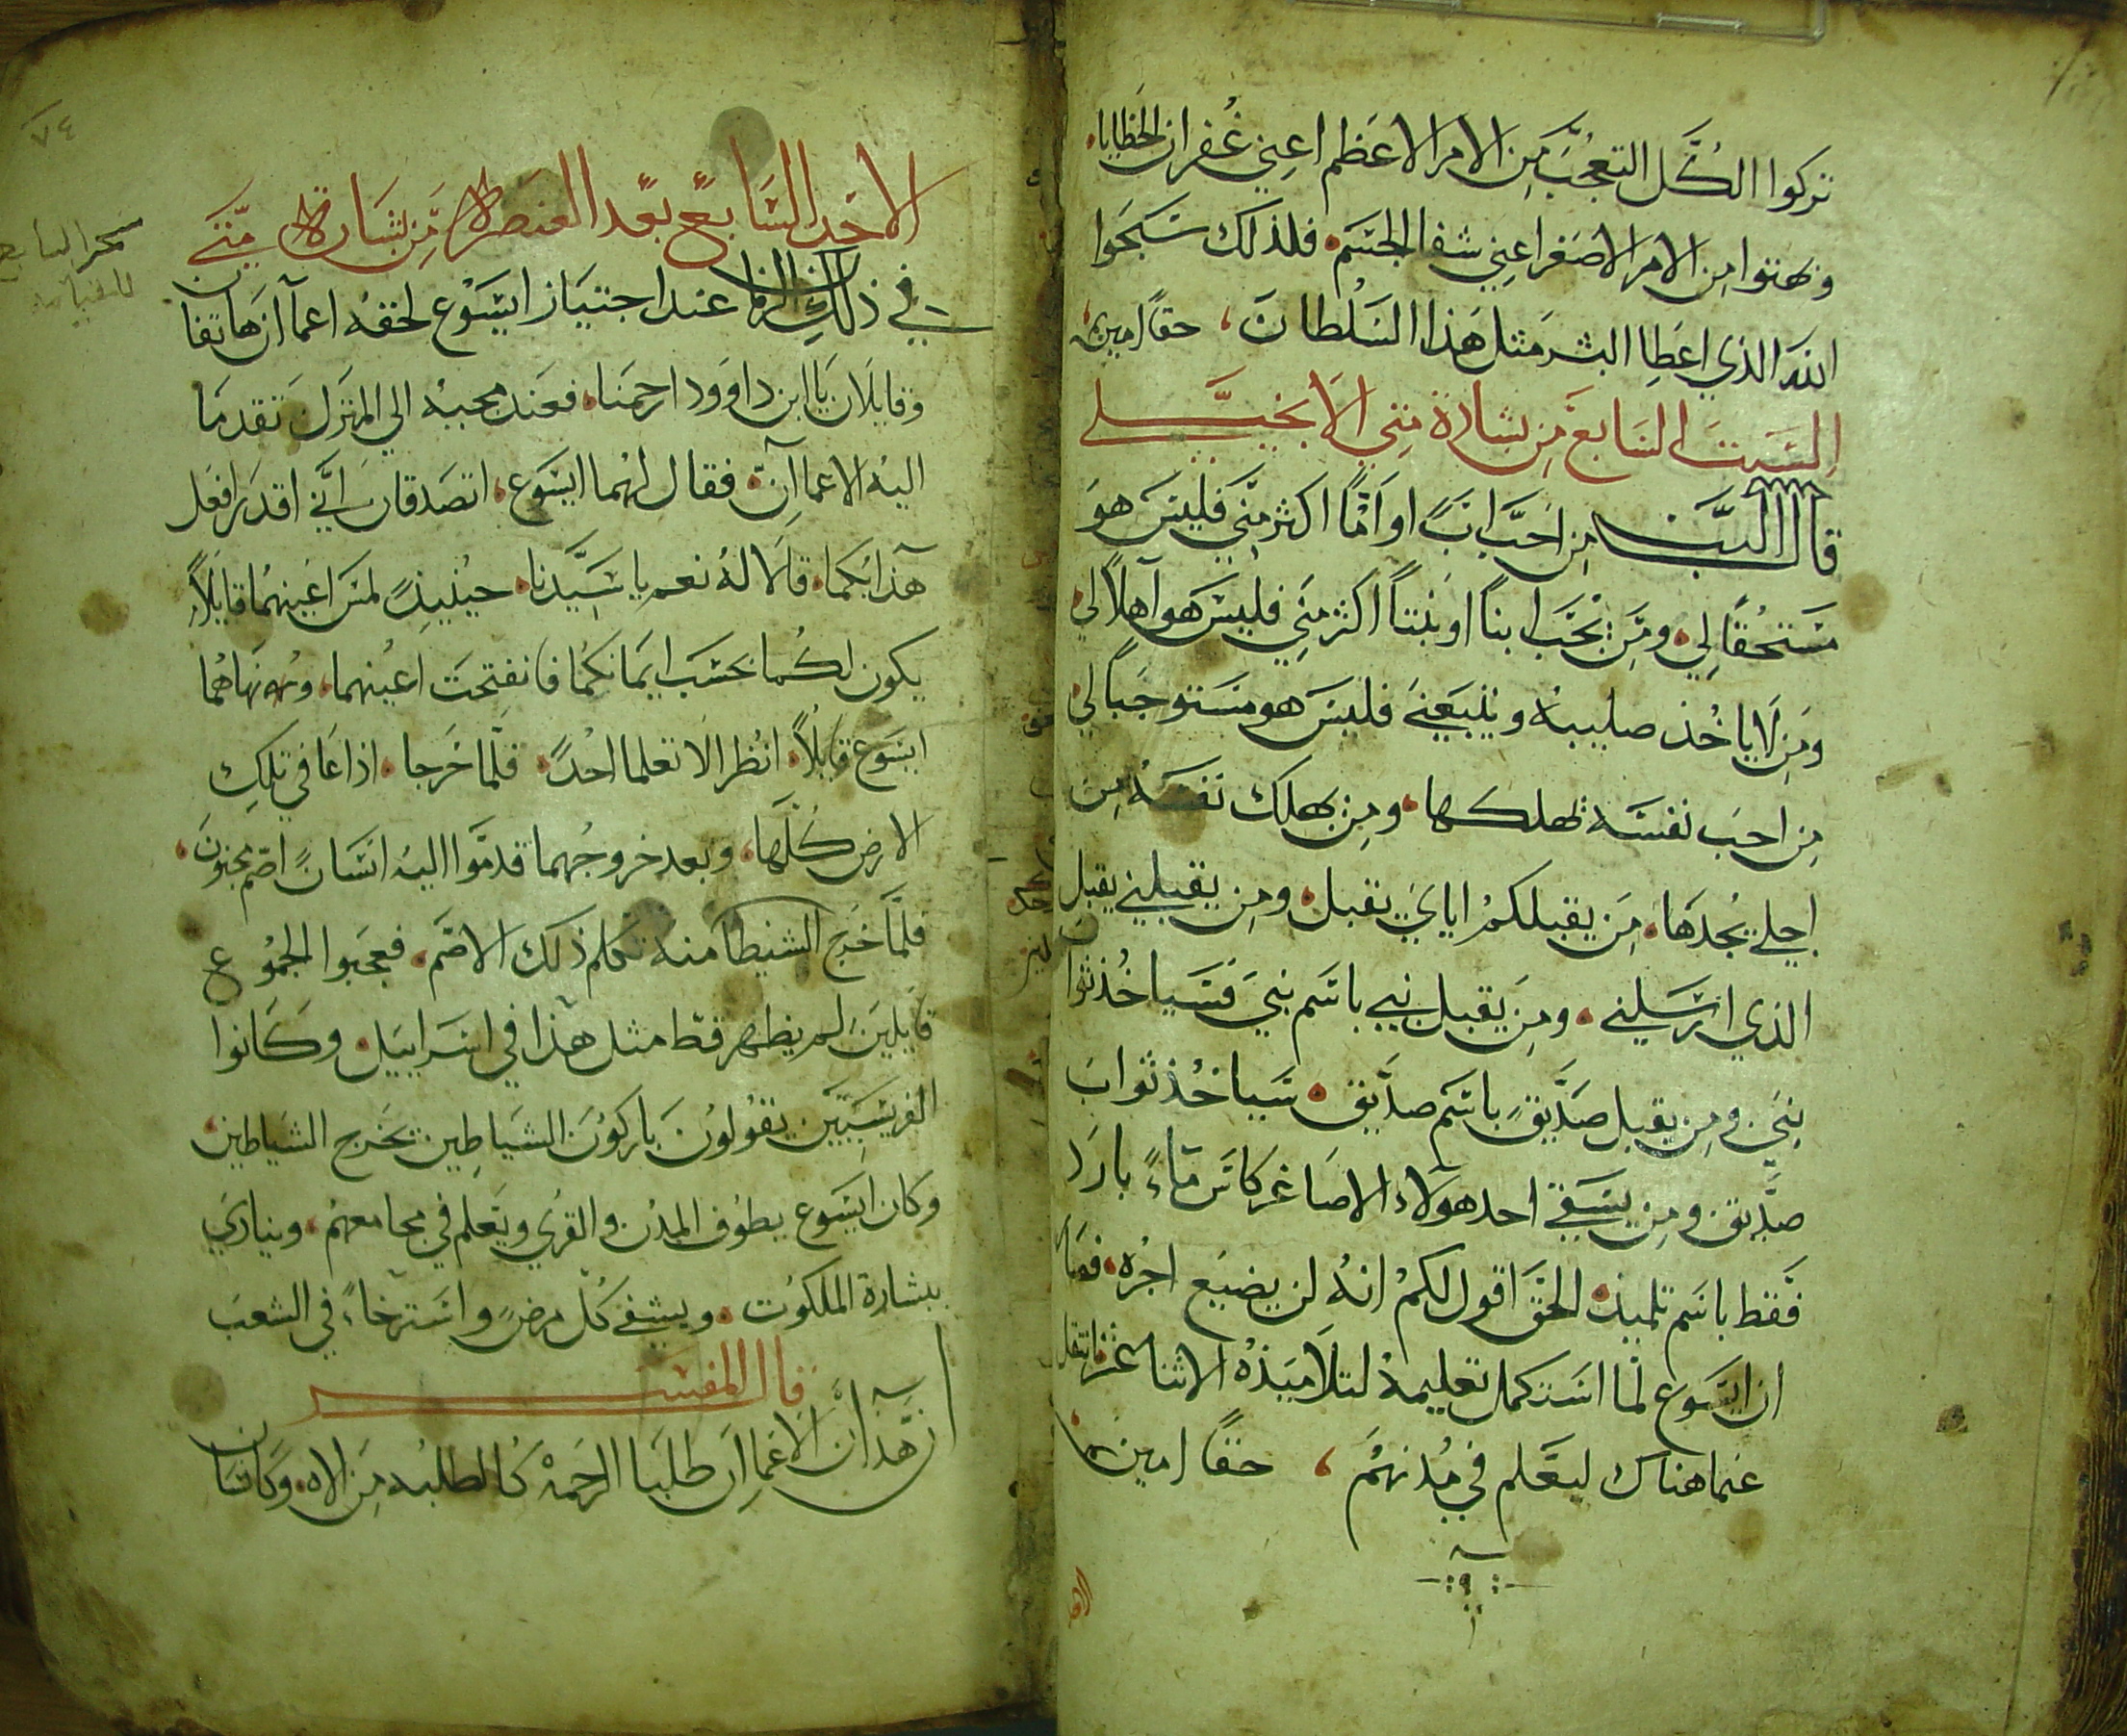 تركوا الكل التعجب من الامر الاعظم اعني غفران الخطايا
وبهتوا من الامر الاصغر اعني شفا الجسم فلذلك سبحوا
الله الذي اعطا البشر مثل هذا السلطان حقا امين
السبت السابع من بشارة متي الانجيلي
قال الرب من احب ابًا او امًا اكثر مني فليس هو
مستحقًا لي ومن يحب ابنًا او بنتًا اكثر مني فليس هو اهلًا لي
ومن لا ياخذ صليبه ويتبعني فليس هو مستوجبًا لي
من احب نفسه يهلكها ومن يهلك نفسه من
اجلي يجدها من يقبلكم اياي يقبل ومن يقبلني يقبل
الذي ارسلني ومن يقبل نبي باسم نبي فسياخذ ثواب
نبي ومن يقبل صديق باسم صديق سياخذ ثواب
صديق ومن يسقي احد هولاء الاصاغر كاس ماء بارد
فقط باسم تلميذ الحق اقول لكم انه لن يضيع اجره فما كان
ان ايسوع لما استكمل تعليمه لتلاميذه الاثنا عشر انتقل
عنما هناك ليعلم في مدنهم حقا امين
الاحد
٧٤
سحر السابع
الاحد السابع بعد العنصره من بشارة متي
في ذلك الزمان عند اجتياز ايسوع لحقه اعماان هاتفان
وقايلان يا ابن داوود ارحمنا فعند مجيه الي المنزل تقدما
اليه الاعماان فقال لهما ايسوع اتصدقان اني اقدر افعل
هذا بكما قالا له نعم يا سيدنا حينيذٍ لمس اعينهما قايلًا
يكون لكما بحسب ايمانكما فانفتحت اعينهما ونهاهما
ايسوع قايلًا انظرا لا تعلما احدًا فلما خرجا اذاعا في تلك
الارض كلها وبعد خروجهما قدموا اليه انسان اصم مجنون
فلما خرج الشيطان منه تكلم ذلك الاصم فعجبوا الجموع
قايلين لم يظهر قط مثل هذا في اسراييل وكانوا
الفريسيين يقولون باركون الشياطين يخرج الشياطين
وكان ايسوع يطوف المدن والقري ويعلم في مجامعهم وينادي
ببشارة الملكوت ويشفي كل مرض واسترخاء في الشعب
قال المفسر
ان هذان الاعماان طلبا الرحمه كالطلبه من الاه وكانتا